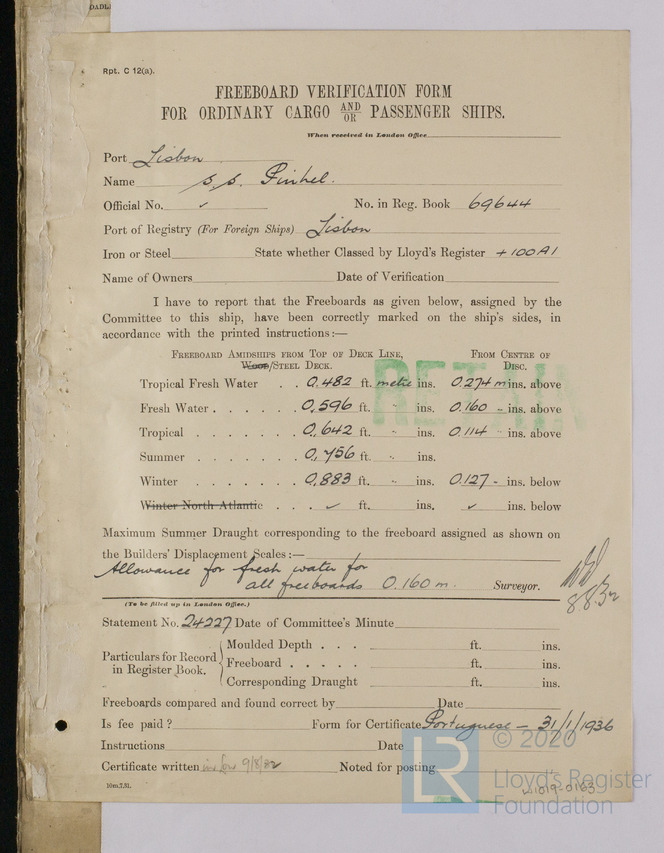 OADL
Rpt. C 12(a).
FREEBOARD VERIFICATION FORM
FOR ORDINARY CARGO AND/OR PASSENGER SHIPS.
When received in London Office
Port Lisbon
Name s.s. Pinhel.
Official No. ✓ No. in Reg. Book 69644
Port of Registry (For Foreign Ships) Lisbon
Iron or Steel State whether Classed by Lloyd's Register +100A1
Name of Owners Date of Verification
I have to report that the Freeboards as given below, assigned by the
Committee to this ship, have been correctly marked on the ship's sides, in
accordance with the printed instructions:—
FREEBOARD AMIDSHIPS FROM TOP OF DECK LINE, FROM CENTRE OF
WOOD/STEEL DECK. DISC.
RETAIN
Tropical Fresh Water . . 0.482 ft. metre ins. 0.274 m ins. above
Fresh Water . . . . . 0.596 ft. " ins. 0.160 " ins. above
Tropical . . . . . . . 0.642 ft. " ins. 0.114 " ins. above
Summer . . . . . . . 0.756 ft. " ins.
Winter . . . . . . . 0.883 ft. " ins. 0.127 - ins. below
Winter North Atlantic . . . ✓ ft. ins. ✓ ins. below
Maximum Summer Draught corresponding to the freeboard assigned as shown on
the Builders' Displacement Scales:—
Allowance for fresh water for
all freeboards 0.160 m. Surveyor.
8.8.32
(To be filled up in London Office.)
Statement No. 24227 Date of Committee's Minute
Particulars for Record in Register Book.
Moulded Depth . . . ft. ins.
Freeboard . . . . . ft. ins.
Corresponding Draught ft. ins.
Freeboards compared and found correct by Date
Is fee paid? Form for Certificate Portuguese — 31/1/1936
Instructions Date
Certificate written 9/8/32 Noted for posting
10m,7,31.
© 2020
LR
Lloyd's Register
Foundation
W1019-0163